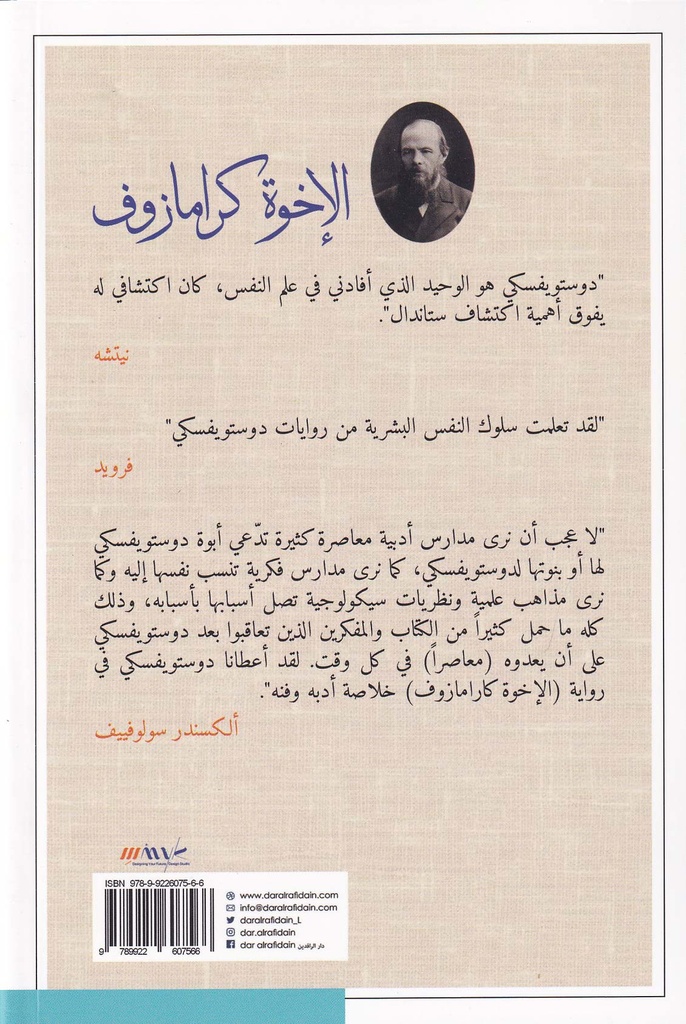 الإخوة كرامازوف
"دوستويفسكي هو الوحيد الذي أفادني في علم النفس، كان اكتشافي له
يفوق أهمية اكتشاف ستاندال".
نيتشه
"لقد تعلمت سلوك النفس البشرية من روايات دوستويفسكي"
فرويد
"لا عجب أن نرى مدارس أدبية معاصرة كثيرة تدّعي أبوة دوستويفسكي
لها أو بنوتها لدوستويفسكي، كما نرى مدارس فكرية تنسب نفسها إليه وكما
نرى مذاهب علمية ونظريات سيكولوجية تصل أسبابها بأسبابه، وذلك
كله ما حمل كثيراً من الكتاب والمفكرين الذين تعاقبوا بعد دوستويفسكي
على أن يعدوه (معاصراً) في كل وقت. لقد أعطانا دوستويفسكي في
رواية (الإخوة كارامازوف) خلاصة أدبه وفنه".
ألكسندر سولوفييف
Designing Your Future | Design Studio
ISBN 978-9-9226075-6-6
9 789922 607566
www.daralrafidain.com
info@daralrafidain.com
daralrafidain_L
dar.alrafidain
dar alrafidain دار الرافدين